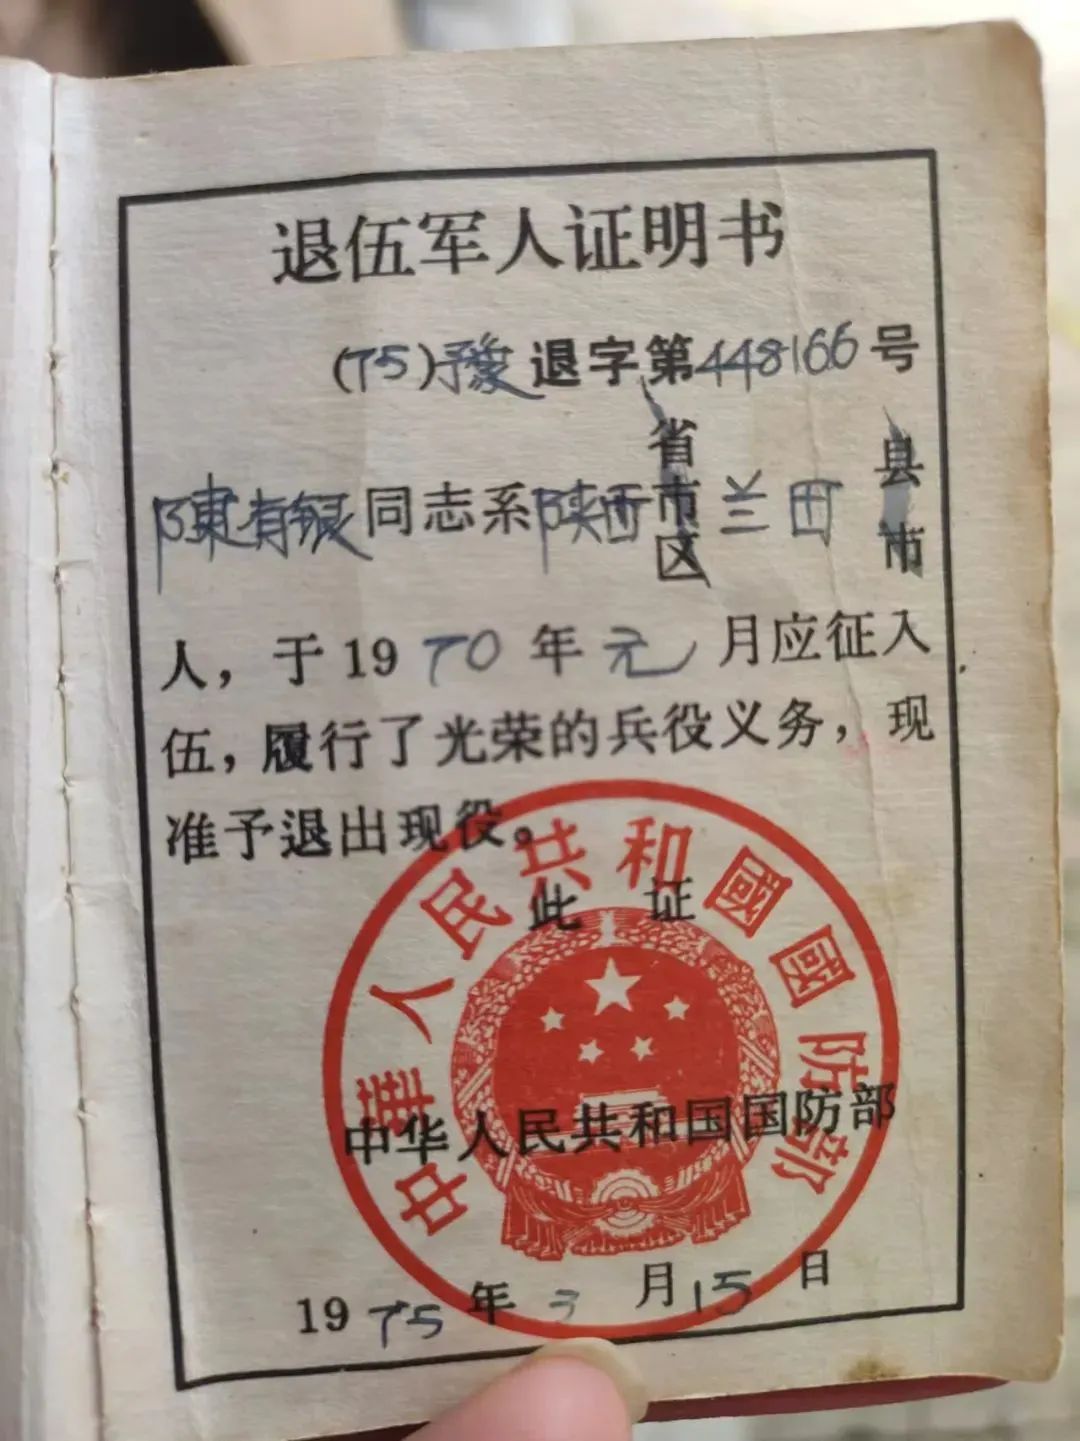 退伍军人证明书
(75)豫退字第448166号
陳有银同志系陕西省市区兰田县市
人，于1970年元月应征入
伍，履行了光荣的兵役义务，现
准予退出现役。
此证
中華人民共和國國防部
中华人民共和国国防部
1975年3月15日